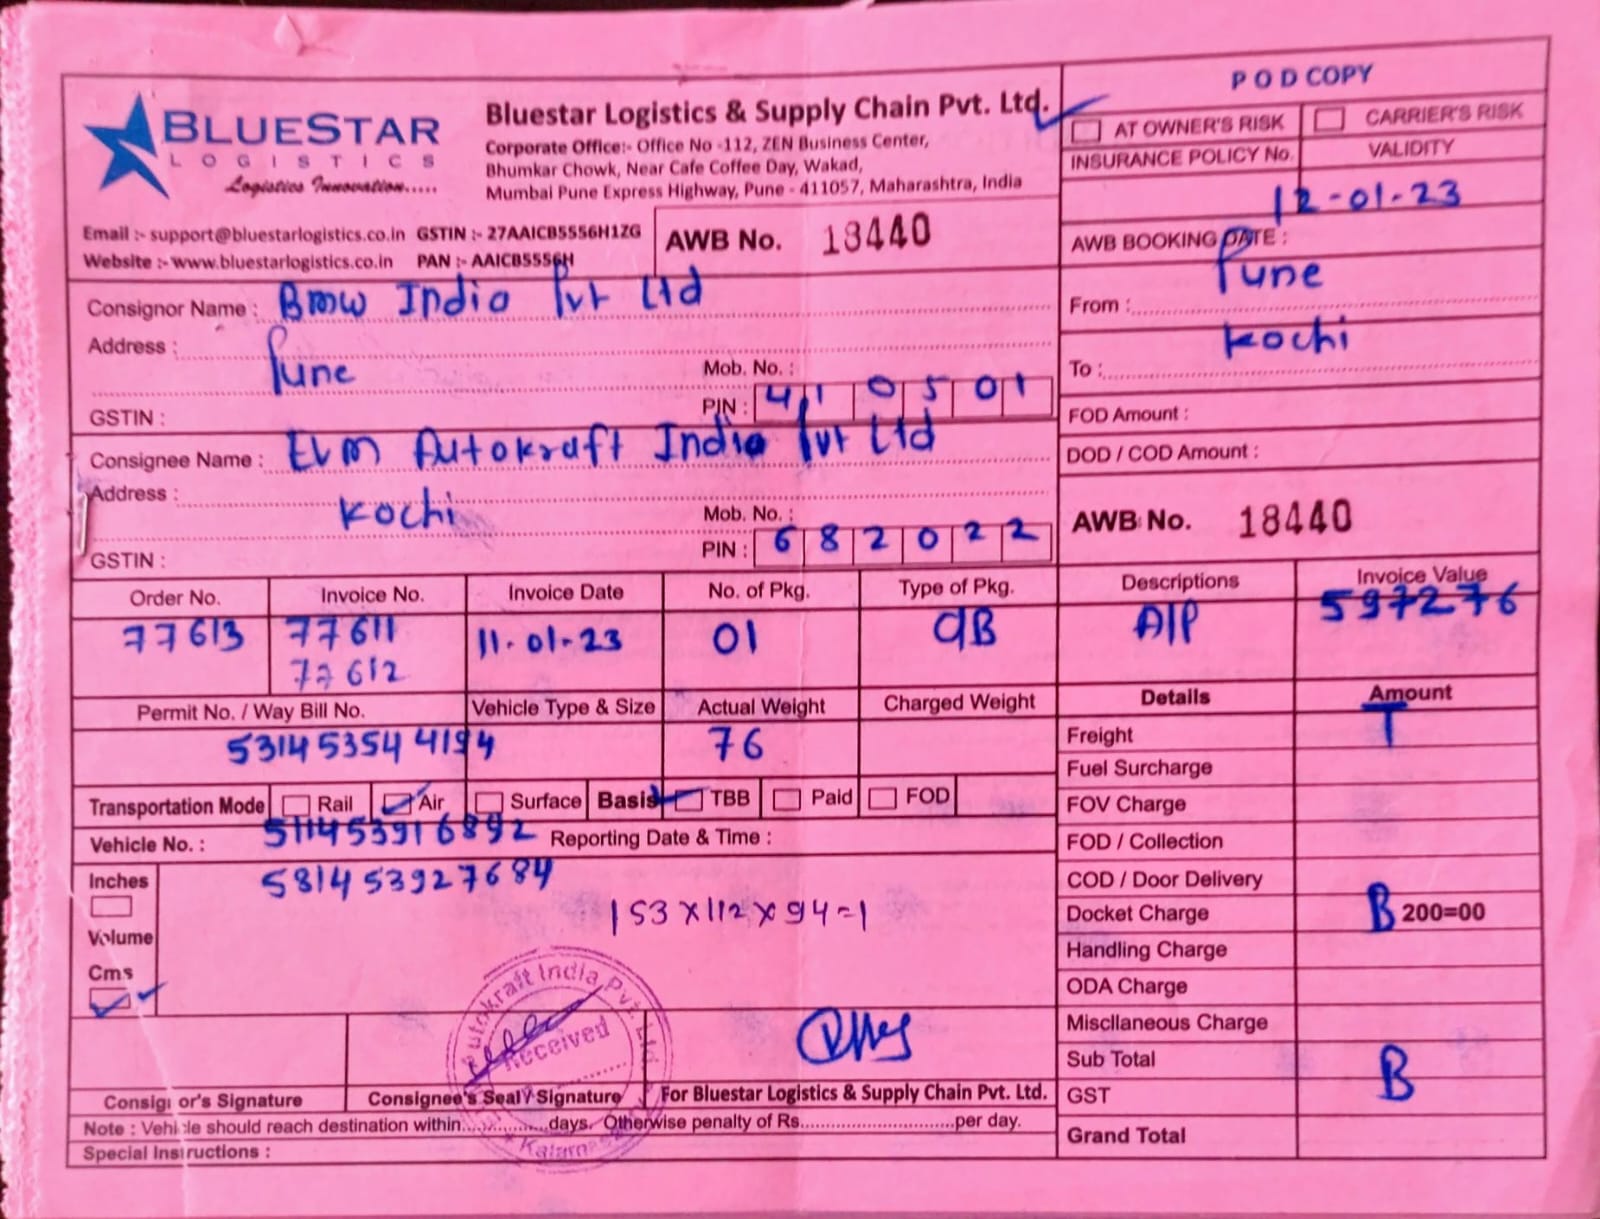 BLUESTAR
LOGISTICS
Logistics Innovation.....
Bluestar Logistics & Supply Chain Pvt. Ltd.
Corporate Office:- Office No -112, ZEN Business Center,
Bhumkar Chowk, Near Cafe Coffee Day, Wakad,
Mumbai Pune Express Highway, Pune - 411057, Maharashtra, India
Email :- support@bluestarlogistics.co.in GSTIN :- 27AAICB5556H1ZG
Website :- www.bluestarlogistics.co.in PAN :- AAICB5556H
AWB No. 18440
POD COPY
AT OWNER'S RISK CARRIER'S RISK
INSURANCE POLICY No. VALIDITY
12-01-23
AWB BOOKING DATE :
From : Pune
To : Kochi
FOD Amount :
DOD / COD Amount :
AWB No. 18440
Consignor Name : BMW India Pvt Ltd
Address : Pune
Mob. No. :
GSTIN : PIN : 410501
Consignee Name : EVM Autokraft India Pvt Ltd
Address : Kochi
Mob. No. :
GSTIN : PIN : 682022
Order No. Invoice No. Invoice Date No. of Pkg. Type of Pkg. Descriptions Invoice Value
77613 77611 11-01-23 01 CB A/P 597276
77612
Permit No. / Way Bill No. Vehicle Type & Size Actual Weight Charged Weight
531453544194 76
Transportation Mode Rail Air Surface Basis TBB Paid FOD
Vehicle No. : 511453916892 Reporting Date & Time :
581453927684
Inches
Volume
Cms
153x112x94=1
Details Amount
Freight T
Fuel Surcharge
FOV Charge
FOD / Collection
COD / Door Delivery
Docket Charge B 200=00
Handling Charge
ODA Charge
Miscllaneous Charge
Sub Total
GST B
Grand Total
utokraft India Pvt. Ltd.
Received
Consignor's Signature Consignee's Seal / Signature For Bluestar Logistics & Supply Chain Pvt. Ltd.
Note : Vehicle should reach destination within..............days. Otherwise penalty of Rs............................per day.
Special Instructions :